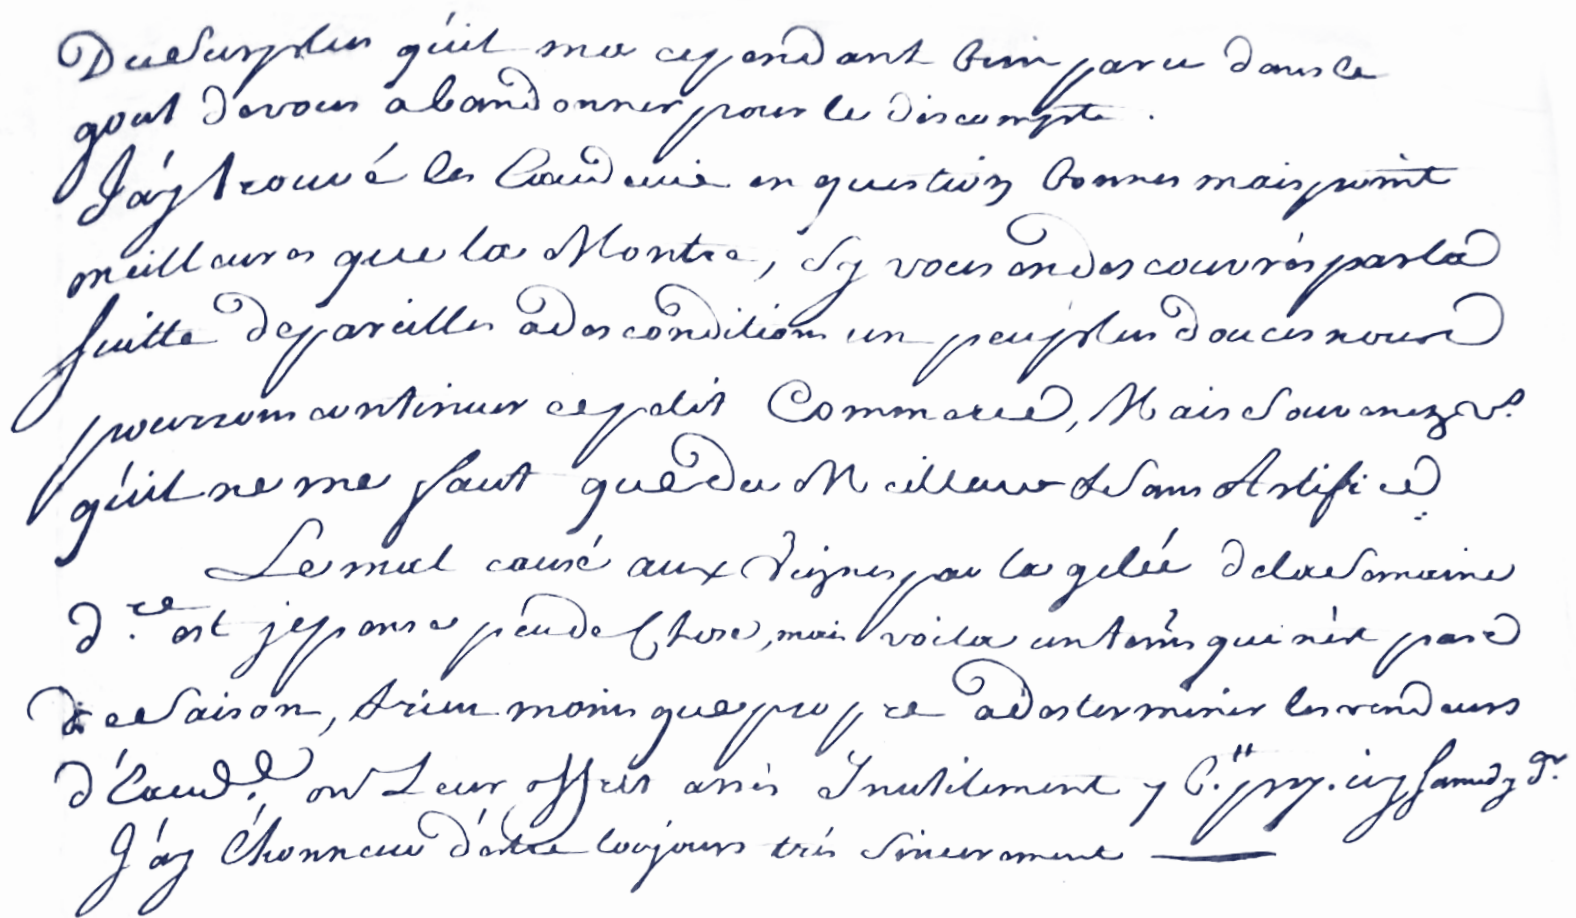 Du Surplus qúil ma cependant bien paru dans le
gout de vous abandonner pour le discompte .
J'áy trouvé les Eaudevie en question bonnes mais point
meilleures que la Montre, Sy vous en descouvrés par la
Suitte de pareilles a des conditions un peu plus douces nous
pourrons continuer cepdit Commerce, Mais Souvenez vs
qúil ne me faut que du Meilleur & Sans Artifice
Le mal causé aux Vignes par la gelée de la Semaine
d.re est je pense peu de Chose, mais voila un tems qui nést pas
de Saison, & rien moins que propre a desterminer les vendeurs
d'Eaud.e on Leur offrit assés Inutilement 7 samedy dr.
J'áy l'honneur d'éstre toujours trés Sincerement